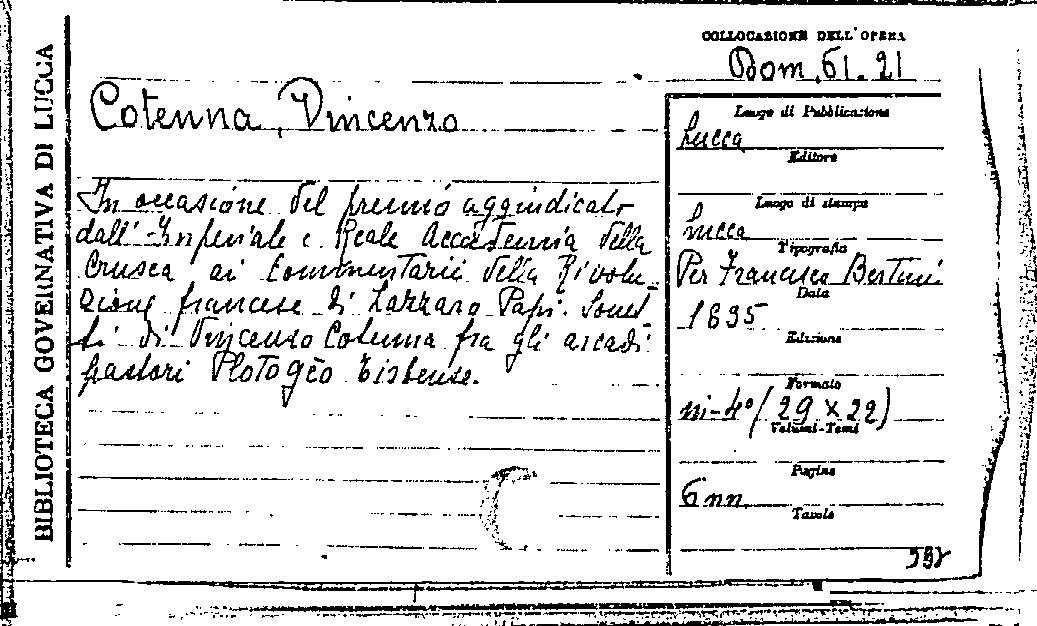 BIBLIOTECA GOVERNATIVA DI LUCCA
COLLOCAZIONE DELL'OPERA
Bom. 61. 21
Cotenna, Vincenzo
In occasione del premio aggiudicato
dall'Imperiale e Reale Accademia della
Crusca ai Commentarii della Rivolu-
zione francese di Lazzaro Papi. Sonet
ti di Vincenzo Cotenna fra gli arcadi
pastori Plotogèo Tisbense.
Luogo di Pubblicazione
Lucca
Editore
Luogo di stampa
Lucca
Tipografia
Per Francesco Bertini
Data
1835
Edizione
Formato
in-4° (29 x 22)
Volumi-Tomi
Pagine
6 nn.
Tavole